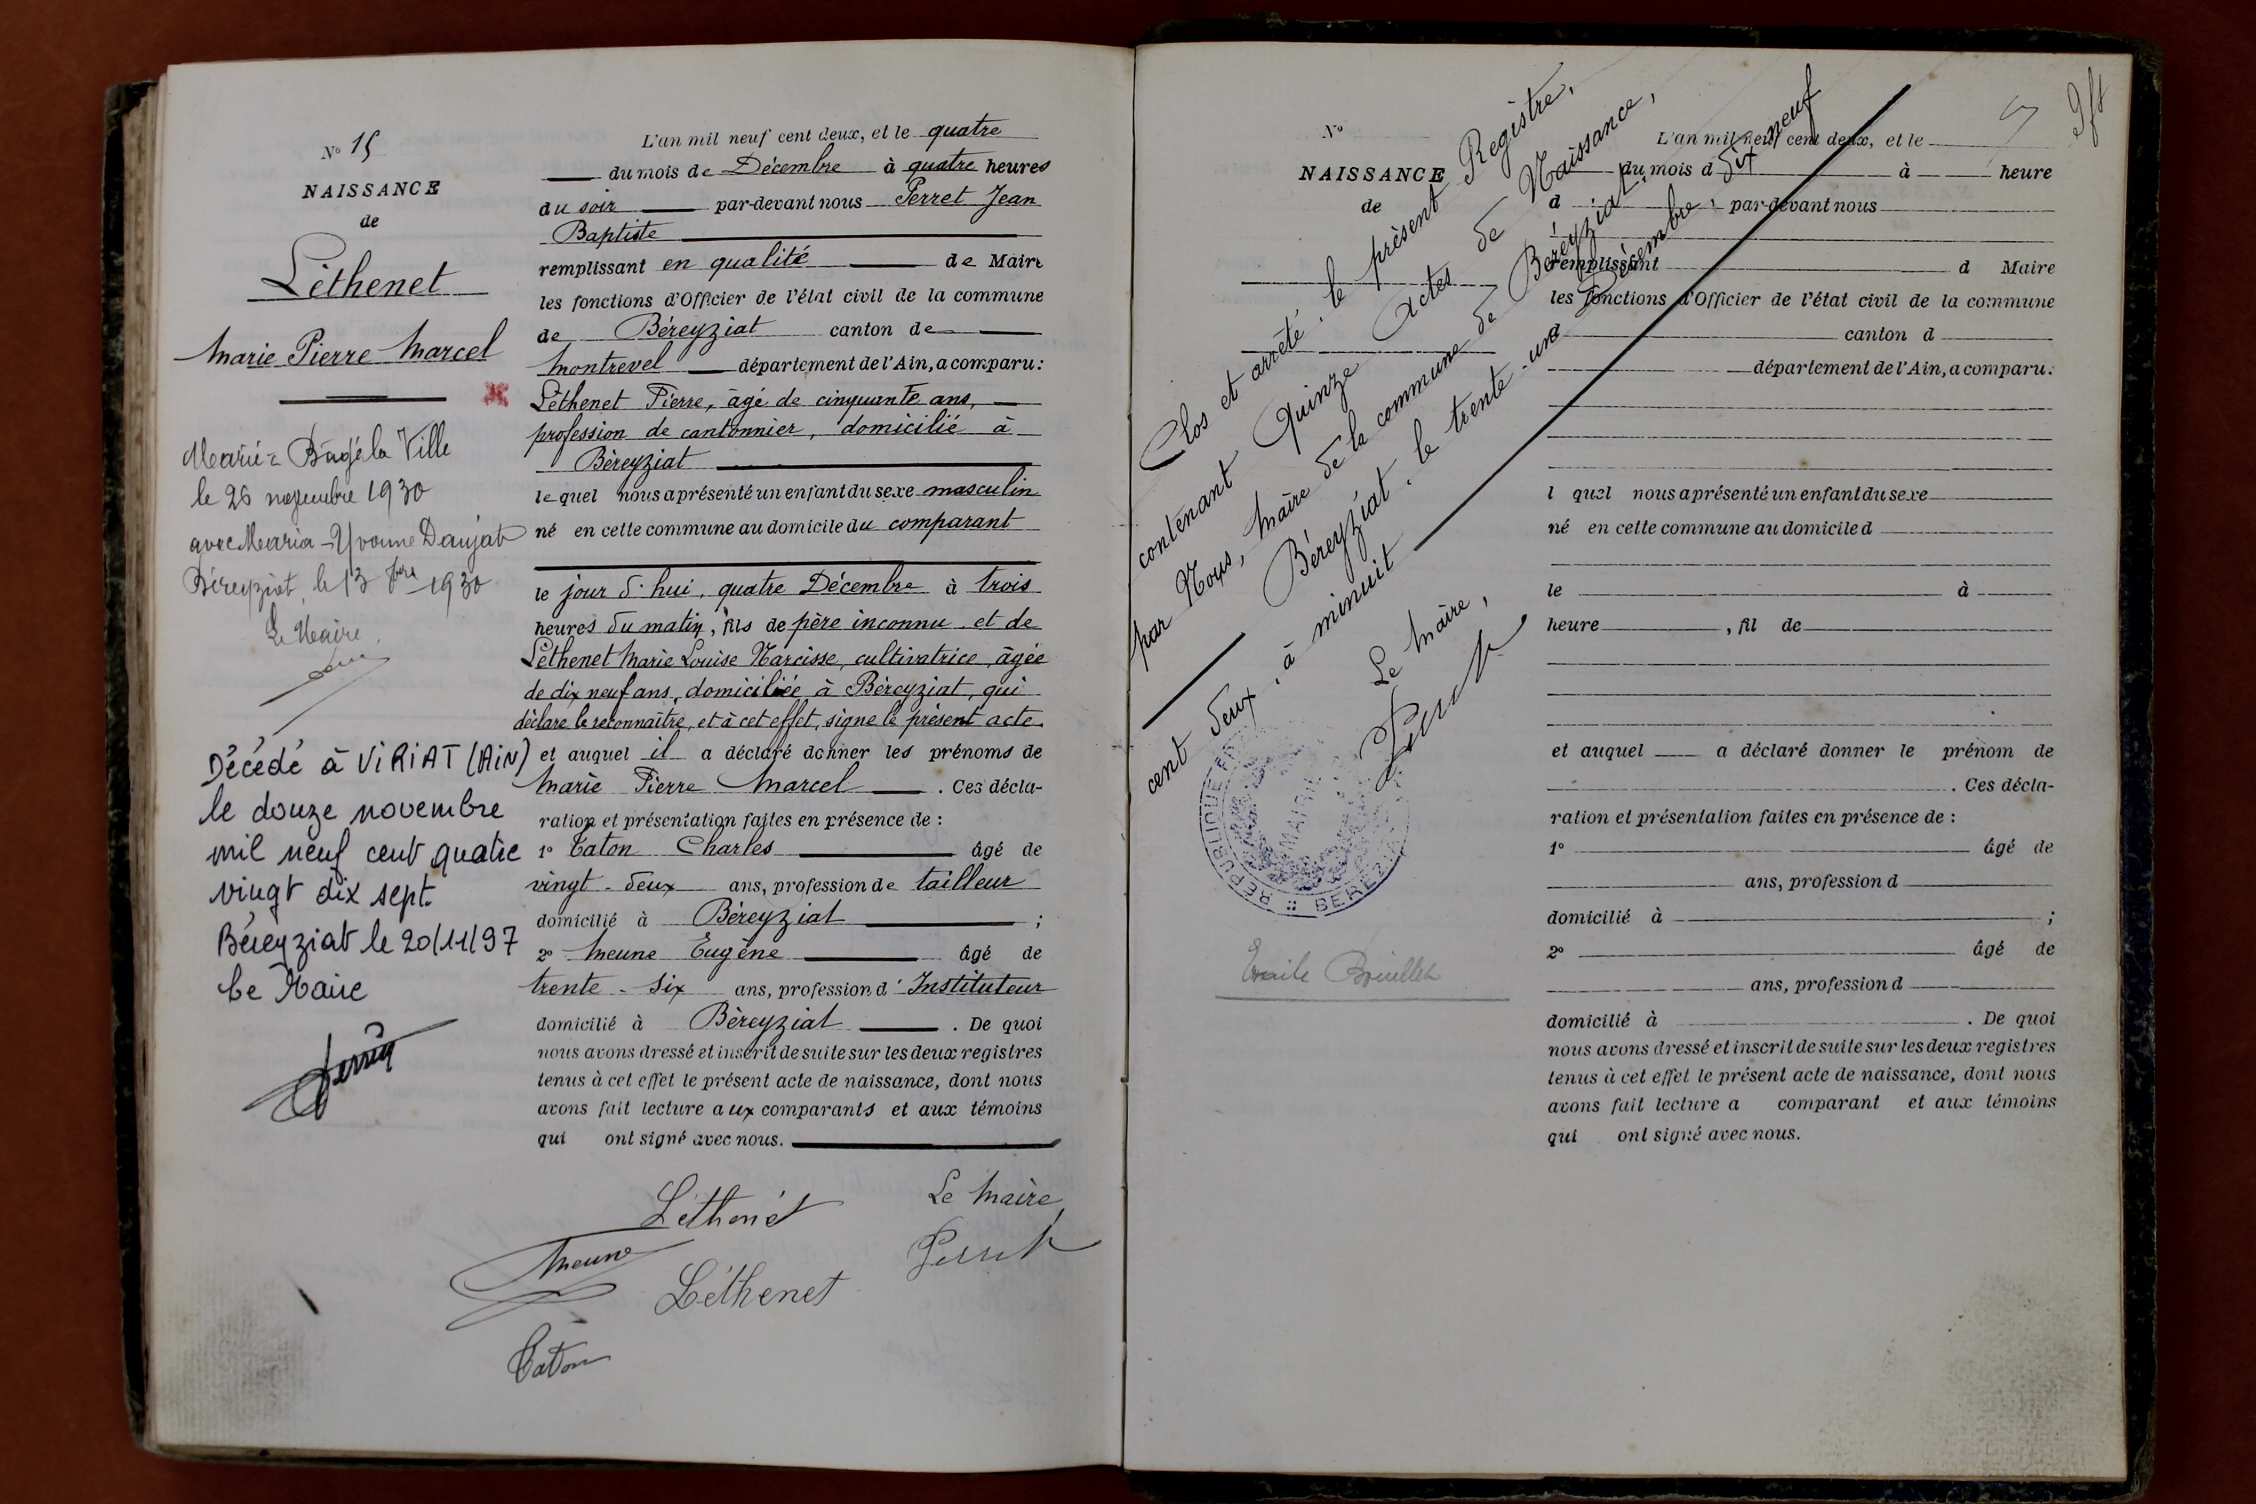 N° 15
NAISSANCE
de
Léthenet
Marie Pierre Marcel
Marié à Bâgé la Ville
le 26 novembre 1930
avec Maria-Yvonne Danjat
Béreyziat, le 13 Xbre 1930
Le Maire,
Décédé à ViRiAT (AiN)
le douze novembre
mil neuf cent quatre
vingt dix sept.
Béreyziat le 20/11/97
Le Maire
L'an mil neuf cent deux, et le quatre
du mois de Décembre à quatre heures
du soir par-devant nous Perret Jean
Baptiste
remplissant en qualité de Maire
les fonctions d'Officier de l'état civil de la commune
de Béreyziat canton de
Montrevel département de l'Ain, a comparu:
Léthenet Pierre, âgé de cinquante ans,
profession de cantonnier, domicilié à
Béreyziat
lequel nous a présenté un enfant du sexe masculin
né en cette commune au domicile du comparant
le jour d'hui, quatre Décembre à trois
heures du matin, fils de père inconnu et de
Léthenet Marie Louise Narcisse, cultivatrice, âgée
de dix neuf ans, domiciliée à Béreyziat, qui
déclare le reconnaître, et à cet effet, signe le présent acte
et auquel il a déclaré donner les prénoms de
Marie Pierre Marcel . Ces décla-
ration et présentation faites en présence de :
1° Caton Charles âgé de
vingt-deux ans, profession de tailleur
domicilié à Béreyziat ;
2° Meune Eugène âgé de
trente-six ans, profession d'Instituteur
domicilié à Béreyziat . De quoi
nous avons dressé et inscrit de suite sur les deux registres
tenus à cet effet le présent acte de naissance, dont nous
avons fait lecture aux comparants et aux témoins
qui ont signé avec nous.
Léthenet
Le Maire,
Meune
Perret
Léthenet
Caton
N°
NAISSANCE
de
Clos et arrêté, le présent Registre,
contenant Quinze Actes de Naissance,
par Nous, Maire de la commune de Béreyziat.
Béreyziat, le trente-un Décembre, dix neuf
cent deux, à minuit
Le Maire,
Perret
RÉPUBLIQUE FR
MAIRIE
BEREZIAT
L'an mil neuf cent deux, et le
du mois d à heure
d par-devant nous
remplissant d Maire
les fonctions d'Officier de l'état civil de la commune
d canton d
département de l'Ain, a comparu:
l quel nous a présenté un enfant du sexe
né en cette commune au domicile d
le à
heure , fil de
et auquel a déclaré donner le prénom de
. Ces décla-
ration et présentation faites en présence de :
1° âgé de
ans, profession d
domicilié à ;
2° âgé de
ans, profession d
domicilié à . De quoi
nous avons dressé et inscrit de suite sur les deux registres
tenus à cet effet le présent acte de naissance, dont nous
avons fait lecture a comparant et aux témoins
qui ont signé avec nous.